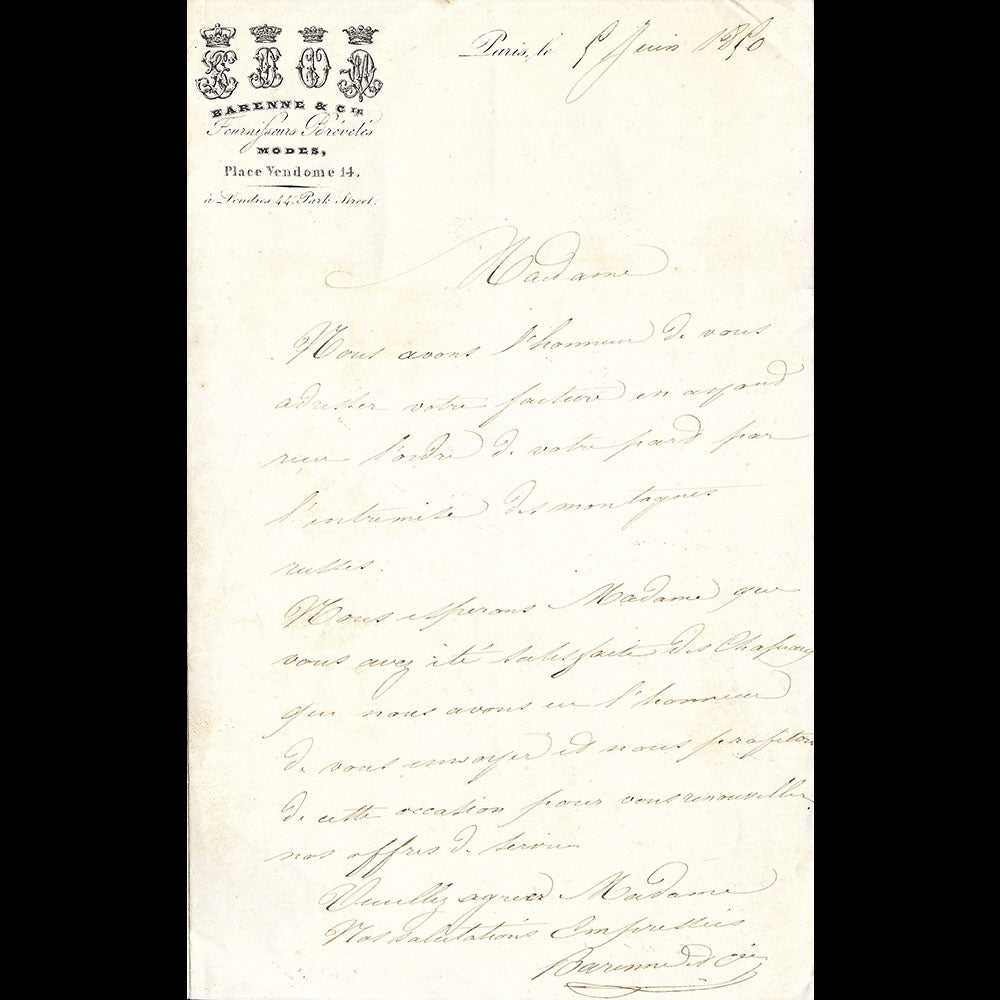 BARENNE & Cie
Fournisseurs Brévetés
MODES,
Place Vendome 14.
à Londres 44. Park Street.
Paris, le 5 Juin 1850
Madame
Nous avons l'honneur de vous
adresser votre facture en ayand
reçu l'ordre de votre pard par
l'entremise des montagnes
russes.
Nous esperons Madame que
vous avez été satisfaite des Chapeaux
que nous avons eu l'honneur
de vous envoyer et nous profitons
de cette occasion pour vous renouveller
nos offres de service
Veuillez agréer Madame
Nos salutations Empressées
Barenne et Cie